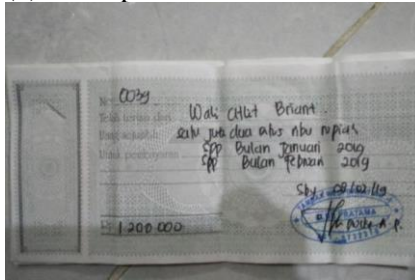 No. 0039
Telah terima dari Wali Chat Briant.
Uang sejumlah satu juta dua ratus ribu rupiah
Untuk pembayaran SPP Bulan Januari 2019
SPP Bulan Februari 2019
Sby, 08/02/19
1.200.000
PRATAMA